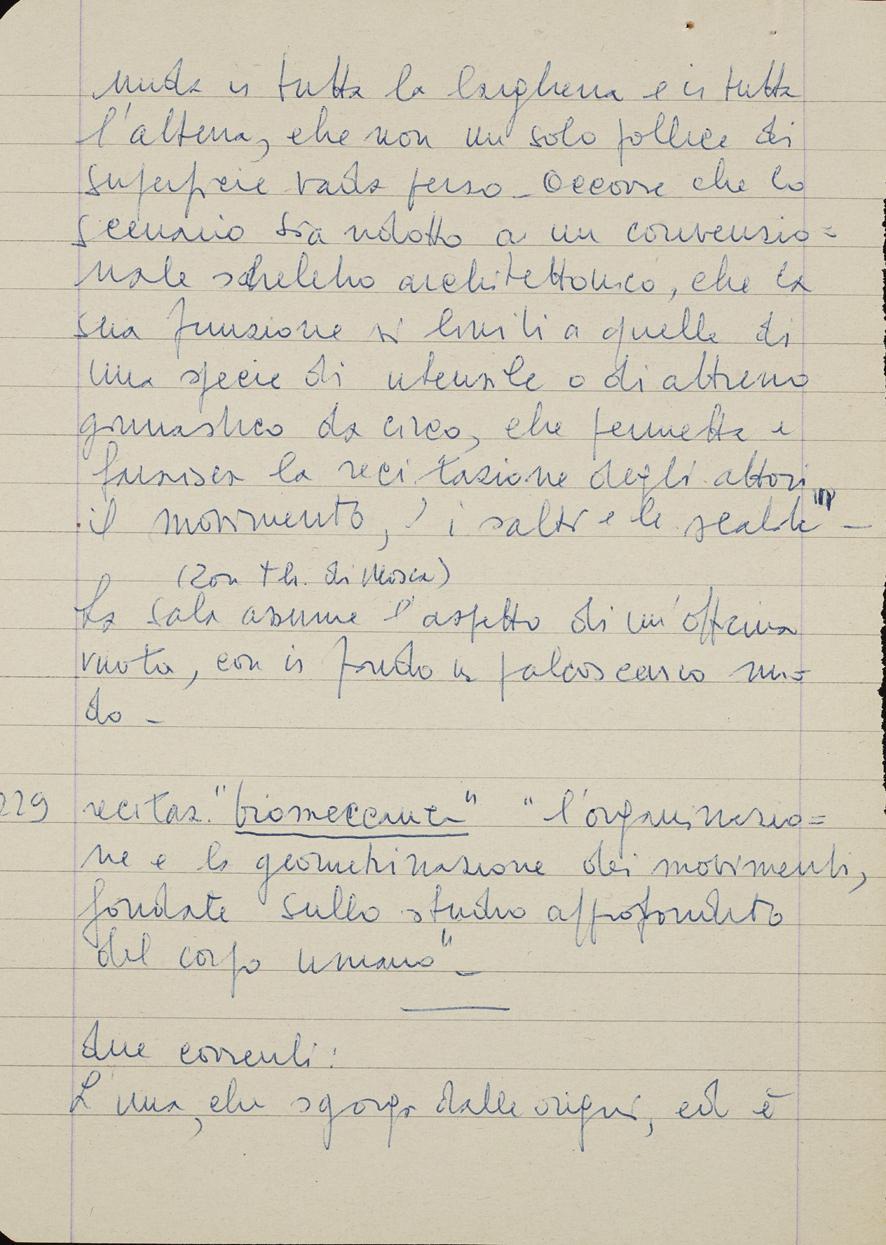 nuda in tutta la larghezza e in tutta
l'altezza, che non un solo pollice di
superficie vada perso_ Occorre che lo
scenario sia ridotto a un convenzio=
nale scheletro architettonico, che la
sua funzione si limiti a quella di
una specie di utensile o di attrezzo
ginnastico da circo, che permetta e
favorisca la recitazione degli attori,
il movimento, i salti e le scalate" _
(Zon Th. di Mosca)
La sala assume l'aspetto di un'officina
vuota, con in fondo un palcoscenico nu=
do _
229 recitaz. "biomeccanica" "l'organizzazio=
ne e la geometrizzazione dei movimenti,
fondate sullo studio approfondito
del corpo umano" _
due correnti:
L'una, che sgorga dalle origini, ed è